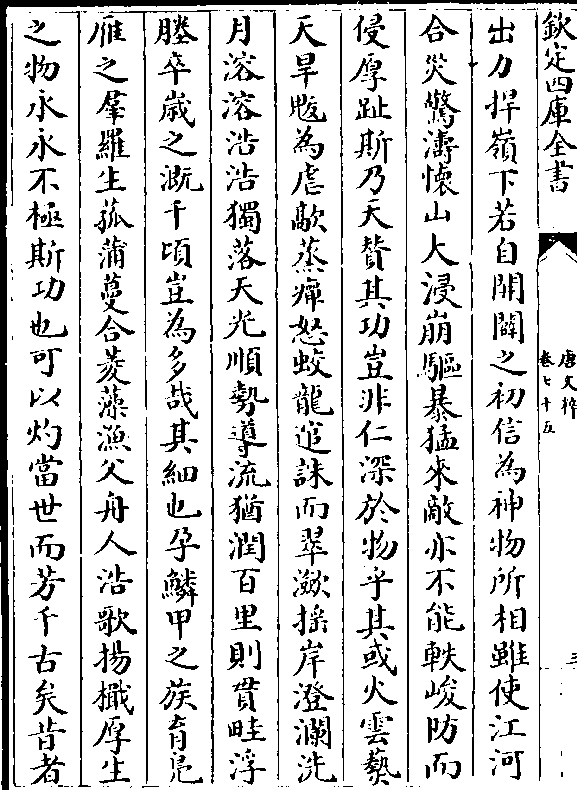 欽定四庫全書
唐文粹
卷七十五
出力捍嶺下若自開闢之初信為神物所相雖使江河
合災驚濤懷山大浸崩驅暴猛來敵亦不能軼峻防而
侵厚趾斯乃天贊其功豈非仁深於物乎其或火雲爇
天旱魃為虐歊蒸癉怒蛟龍逭誅而翠潋揺岸澄瀾洗
月溶溶浩浩獨落天光順勢導流猶潤百里則貫畦浮
塍卒歳之溉千頃豈為多哉其細也孕鱗甲之族育鳬
雁之羣羅生菰蒲蔓合菱藻漁父舟人浩歌揚檝厚生
之物永永不極斯功也可以灼當世而芳千古矣昔者